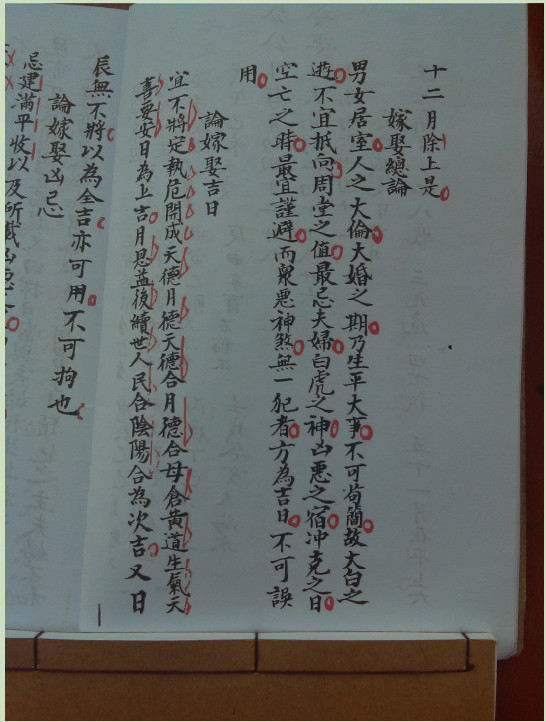 十二月除上是
嫁娶總論
男女居室人之大倫大婚之期乃生平大事不可苟簡故大白之
遊不宜抵向周堂之值最忌夫婦白虎之神凶惡之宿冲克之日
空亡之時最宜謹避而衆惡神煞無一犯者方為吉日不可誤
用
論嫁娶吉日
宜不將定執危開成天德月德天德合月德合母倉黃道生氣天
喜要安日為上吉月恩益後續世人民合陰陽合為次吉又日
辰無不將以為全吉亦可用不可拘也
論嫁娶凶忌
忌建滿平收以及所載凶